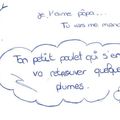 je t'aime papa...
Tu vas me manq
Ton petit poulet qui s'en
va retrouver quelques
plumes.